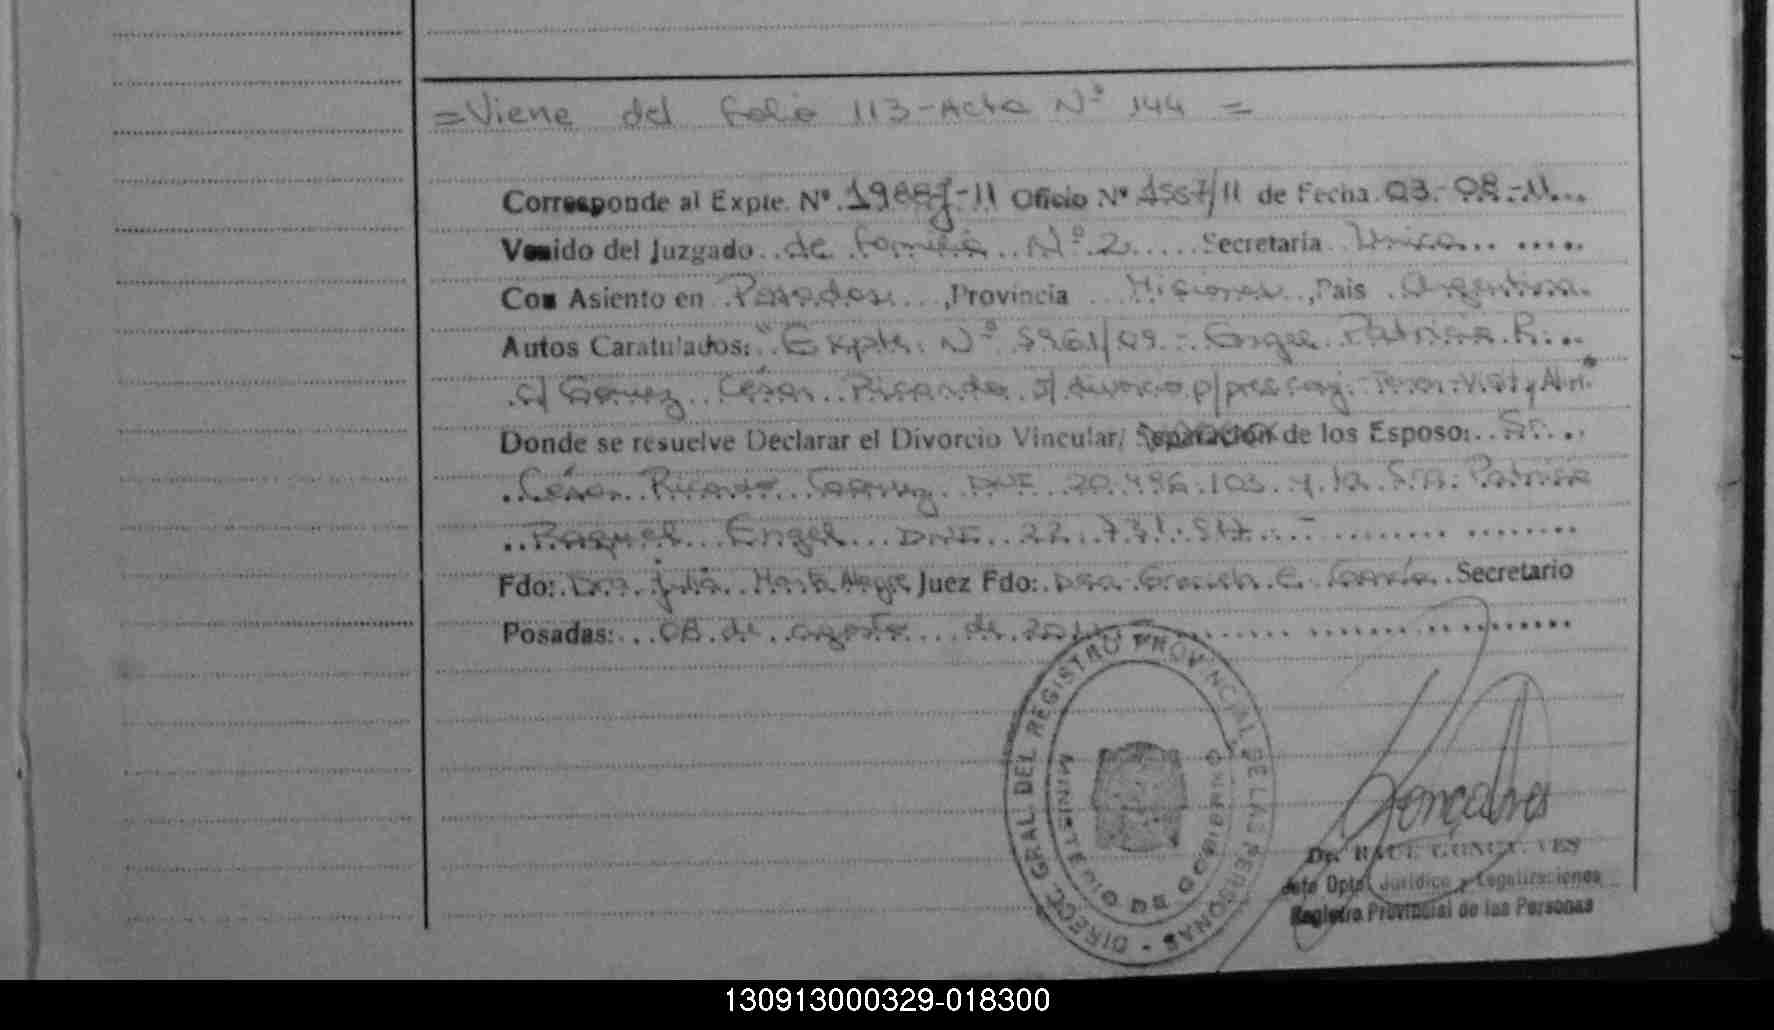 =Viene del folio 113-Acta Nº 144 =
Corresponde al Expte. Nº 1988J-11 Oficio Nº 4567/11 de Fecha 03-08-11
Venido del Juzgado de Familia Nº 2 Secretaría Unica
Con Asiento en Posadas, Provincia Misiones, Pais Argentina
Autos Caratulados: "Expte. Nº 5961/09 - Engel Patricia R.
c/ Gomez César Ricardo s/ divorcio p/ pres conj.
Donde se resuelve Declarar el Divorcio Vincular/ Separación de los Esposo: Sr.
César Ricardo Gomez DNI 20.496.103 y la Sra. Patricia
Raquel Engel DNI 22.731.517
Fdo: Dra. Julia Marta Alegre Juez Fdo: Dra. Graciela E. García Secretario
Posadas: 08 de agosto de 2011
DIRECC. GRAL. DEL REGISTRO PROVINCIAL DE LAS PERSONAS -
MINISTERIO DE GOBIERNO
Goncalves
Dr. RAUL GONCALVES
Jefe Dpto. Jurídico y Legalizaciones
Registro Provincial de las Personas
130913000329-018300